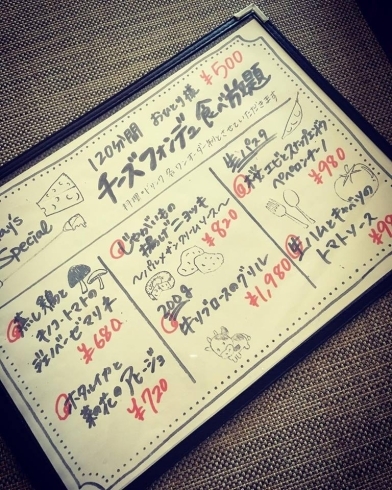 120分間 おひとり様 ¥500
チーズフォンデュ食べ放題
お料理・ドリンク 各ワンオーダー制とさせていただきます
Day's
Special
蒸し鶏と
キノコ・トマトの
ジェノバーゼマリネ
¥680
ホタルイカと
菜の花のアヒージョ
¥720
じゃがいもの
揚げニョッキ
〜パルメザンクリームソース〜
¥820
200g
牛リブロースのグリル
¥1,980
生パスタ
桜エビとスナップエンドウ
ペペロンチーノ
¥980
生ハムとキャベツの
トマトソース